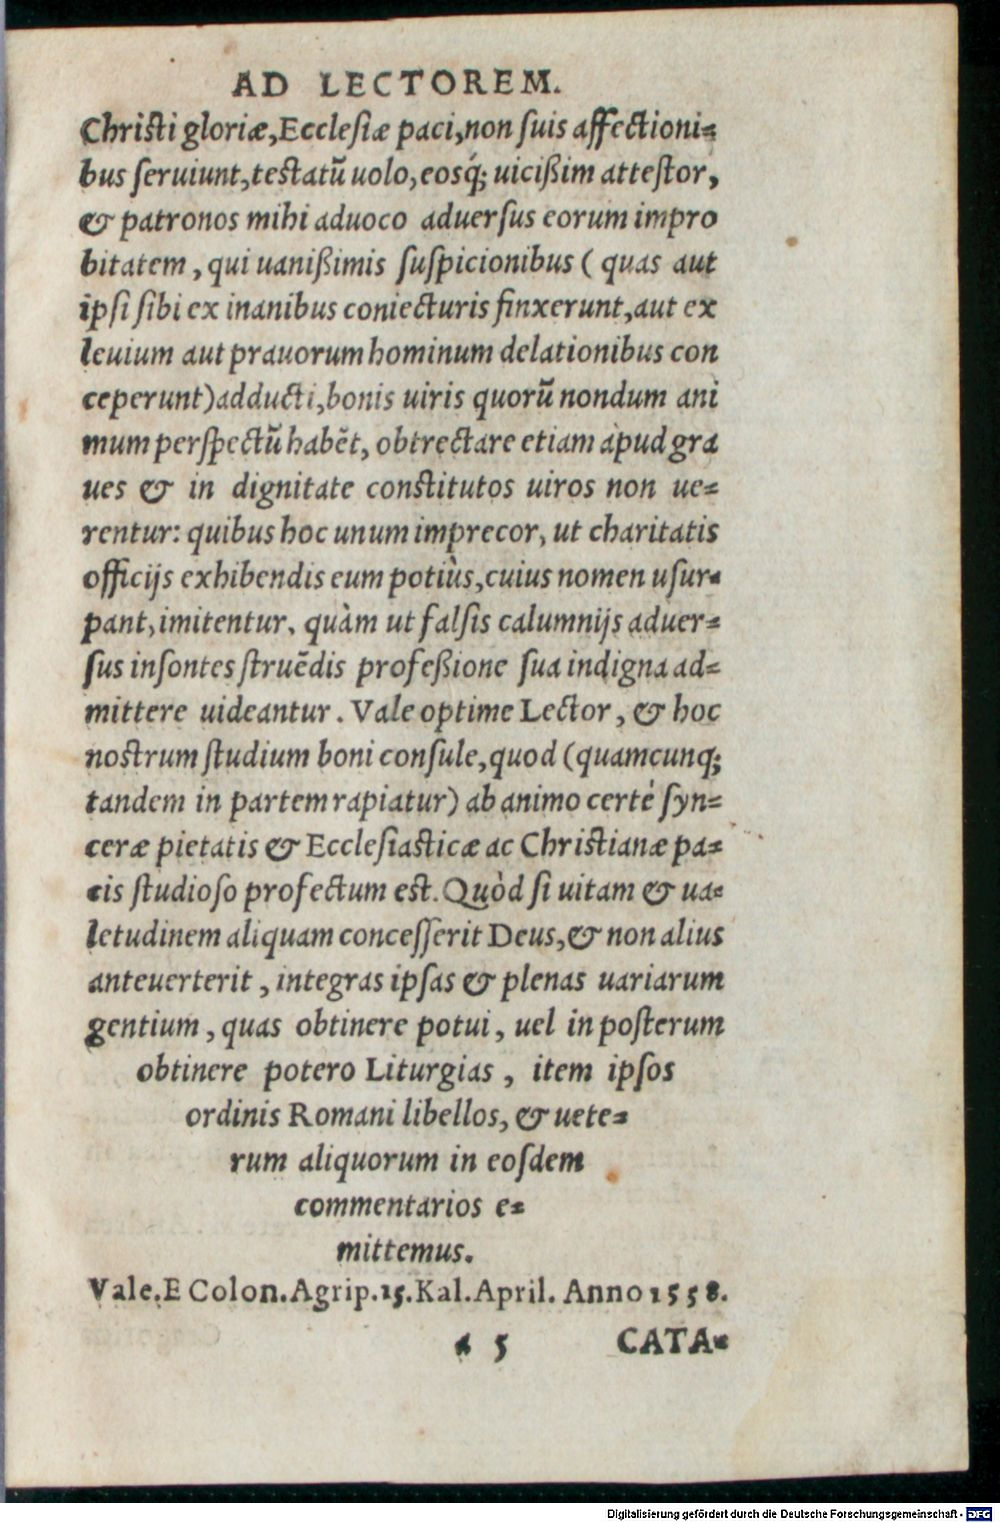 AD LECTOREM.
Christi gloriæ, Ecclesiæ paci, non suis affectioni-
bus seruiunt, testatũ uolo, eosq́; uicißim attestor,
& patronos mihi aduoco aduersus eorum impro
bitatem, qui uanißimis suspicionibus ( quas aut
ipsi sibi ex inanibus coniecturis finxerunt, aut ex
leuium aut prauorum hominum delationibus con
ceperunt) adducti, bonis uiris quorũ nondum ani
mum perspectũ habẽt, obtrectare etiam apud gra
ues & in dignitate constitutos uiros non ue-
rentur: quibus hoc unum imprecor, ut charitatis
officijs exhibendis eum potiùs, cuius nomen usur-
pant, imitentur, quàm ut falsis calumnijs aduer-
sus insontes struẽdis profeßione sua indigna ad-
mittere uideantur. Vale optime Lector, & hoc
nostrum studium boni consule, quod (quamcunq;
tandem in partem rapiatur) ab animo certè syn-
ceræ pietatis & Ecclesiasticæ ac Christianæ pa-
cis studioso profectum est. Quòd si uitam & ua-
letudinem aliquam concesserit Deus, & non alius
anteuerterit, integras ipsas & plenas uariarum
gentium, quas obtinere potui, uel in posterum
obtinere potero Liturgias, item ipsos
ordinis Romani libellos, & uete-
rum aliquorum in eosdem
commentarios e-
mittemus.
Vale. E Colon. Agrip. 15. Kal. April. Anno 1558.
a 5 CATA-
Digitalisierung gefördert durch die Deutsche Forschungsgemeinschaft - DFG